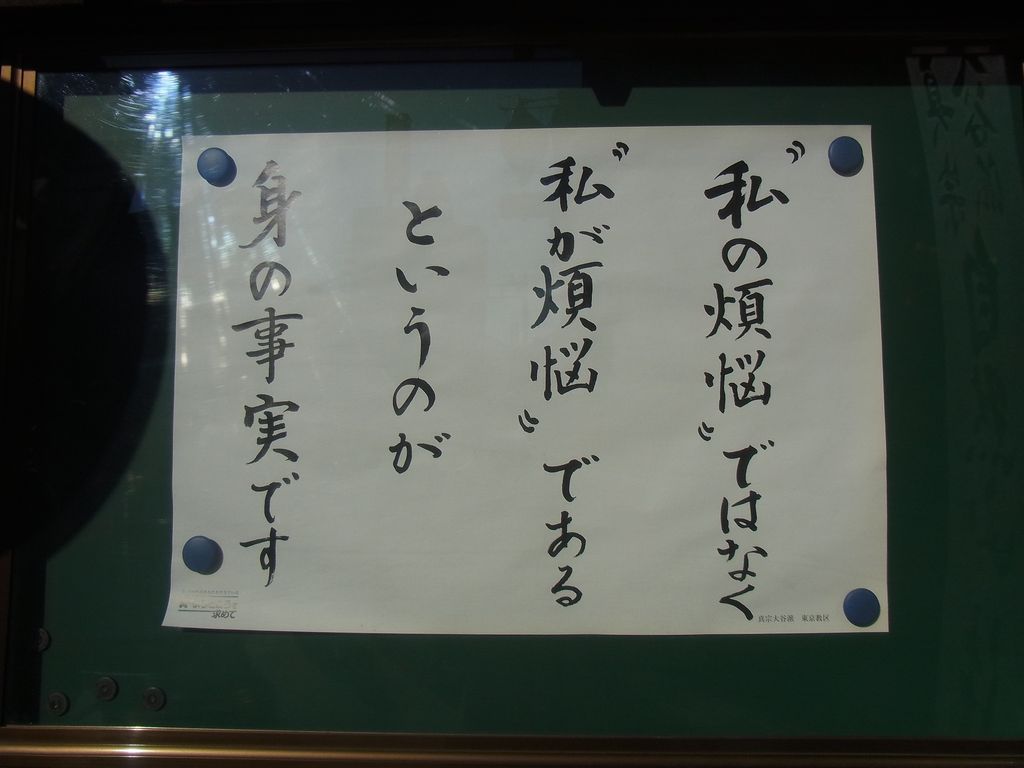 〝私の煩悩〟ではなく
〝私が煩悩〟である
というのが
身の事実です
真宗大谷派 東京教区